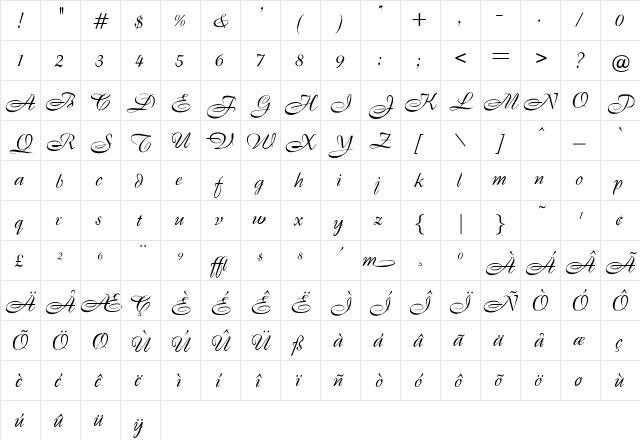 ! " # $ % & ' ( ) * + , - . / 0
1 2 3 4 5 6 7 8 9 : ; < = > ? @
A B C D E F G H I J K L M N O P
Q R S T U V W X Y Z [ \ ] ^ _ `
a b c d e f g h i j k l m n o p
q r s t u v w x y z { | } ~ ¹ ¢
£ ² ⁶ ¨ ⁹ ffl $ ⁸ ´ m ⁰ À Á Â Ã
Ä Å Æ Ç È É Ê Ë Ì Í Î Ï Ñ Ò Ó Ô
Õ Ö Ø Ù Ú Û Ü ß à á â ã ä å æ ç
è é ê ë ì í î ï ñ ò ó ô õ ö ø ù
ú û ü ÿ